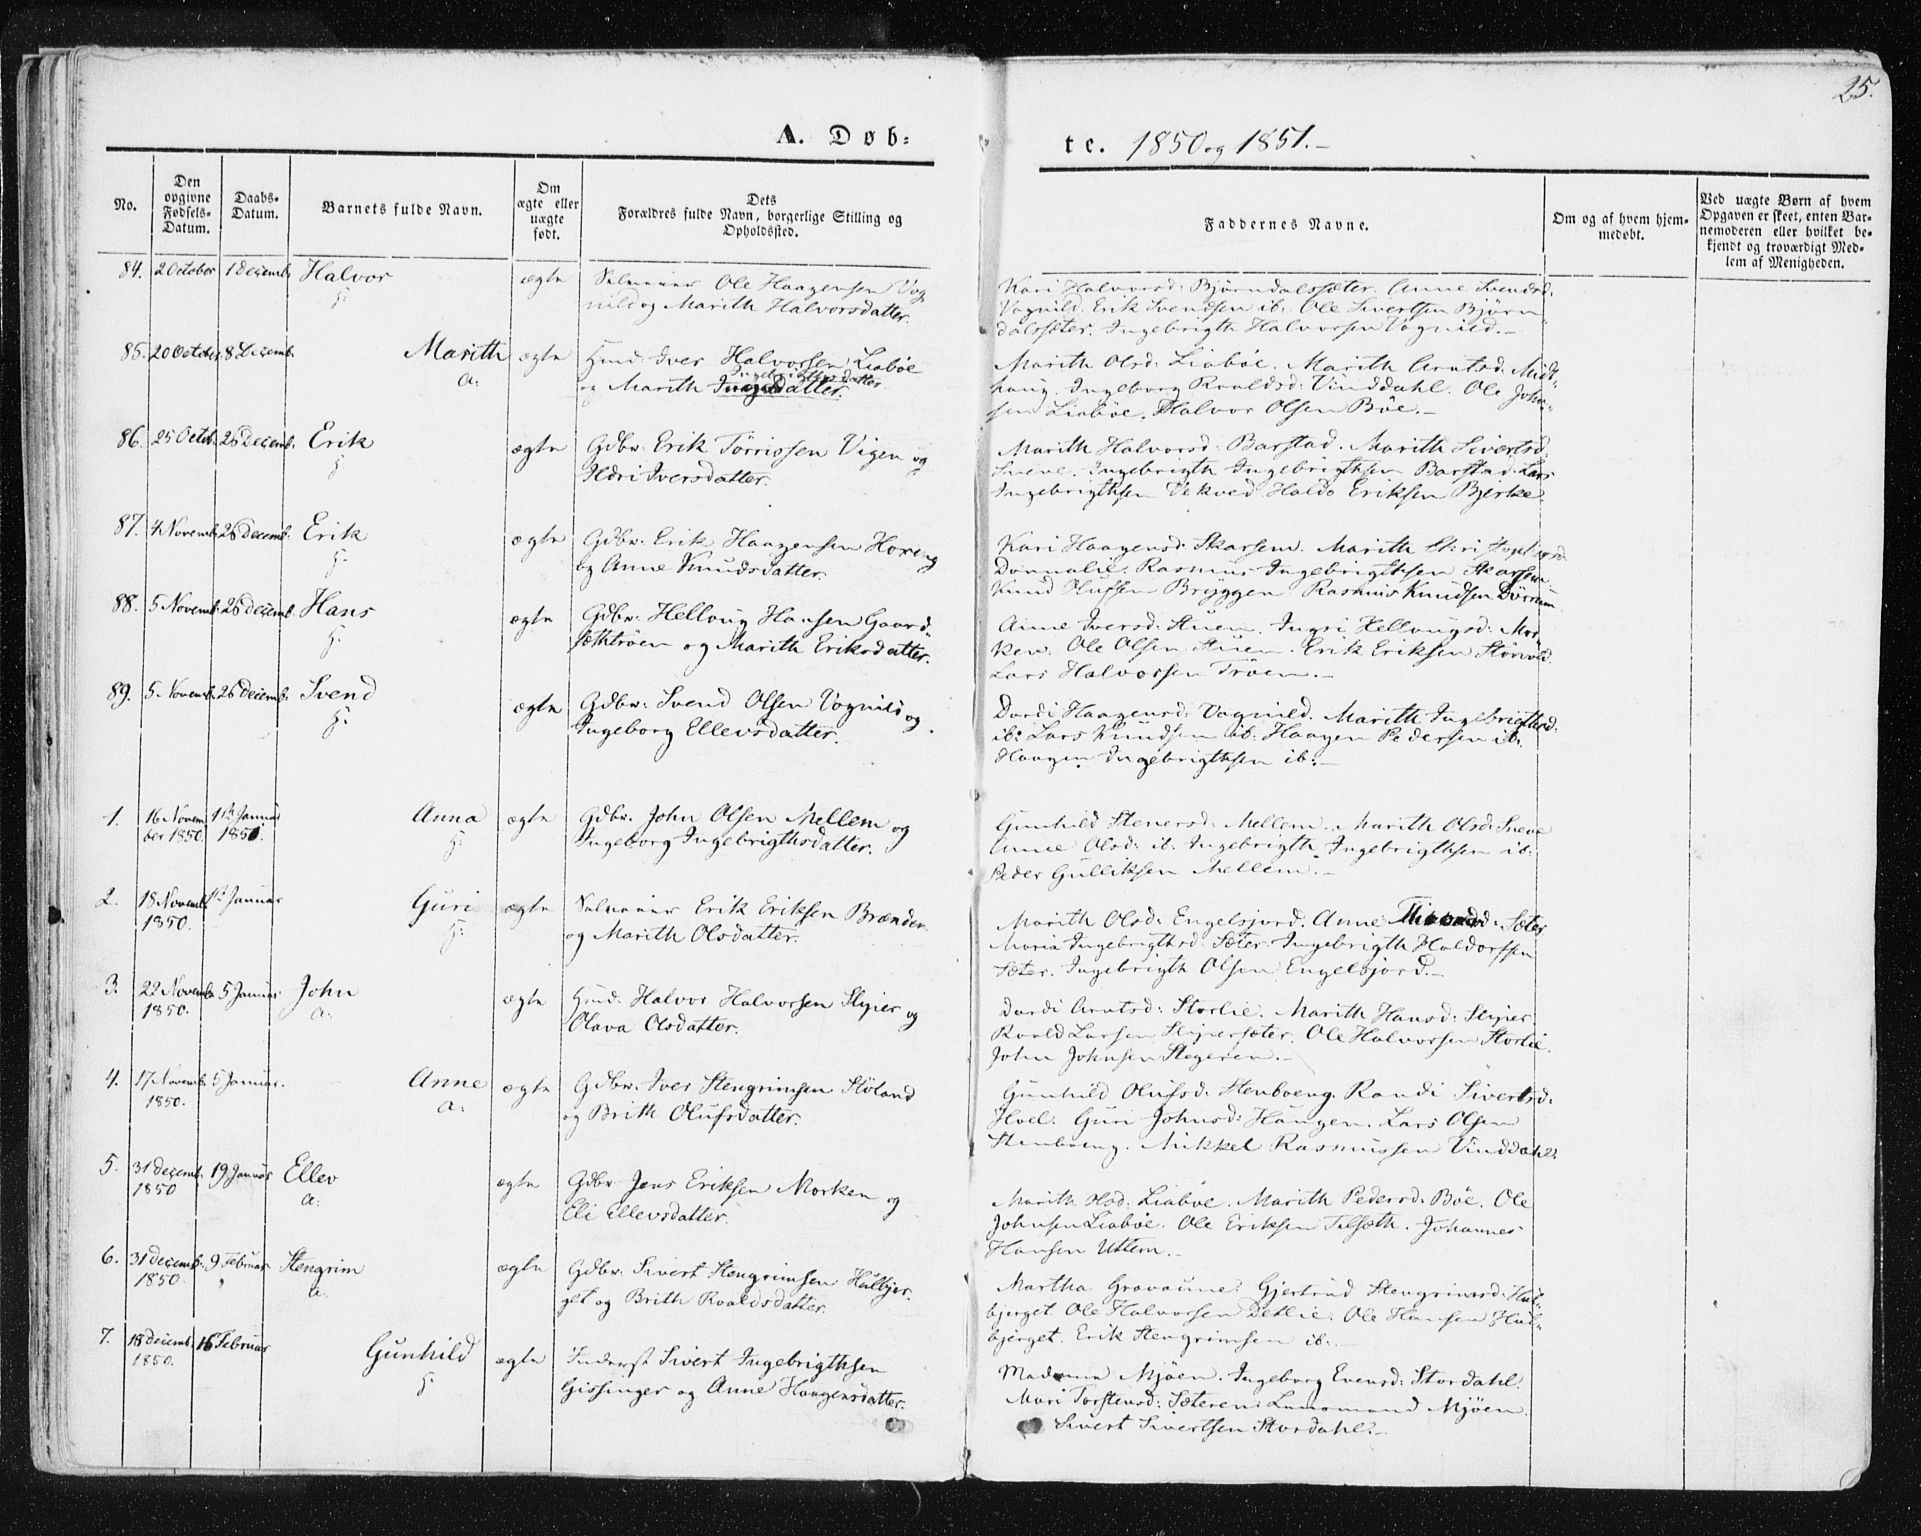 25.
A. Døb-
te. 1850 og 1851.-
No.
Den
opgivne
Fødsels-
Datum.
Daabs-
Datum.
Barnets fulde Navn.
Om
ægte eller
uægte
født.
Dets
Forældres fulde Navn, borgerlige Stilling og
Opholdssted.
Faddernes Navne.
Om og af hvem hjem-
medøbt.
Ved uægte Børn af hvem
Opgaven er skeet, enten Bar-
nemoderen eller hvilket be-
kjendt og troværdigt Med-
lem af Menigheden.
84. 2 October 1 Decemb. Halvor ægte Selveier Ole Haagensen Vog-
H. nild og Marith Halvorsdatter.
Kari Halvorsd: Bjørndalssæter. Anne Svendsd.
Vognild. Erik Svendsen ib: Ole Sivertsen Bjørn-
dalssæter. Ingebrigth Halvorsen Vognild.-
85. 20 October 8 Decemb. Marith ægte Hmd. Iver Halvorsen Liabøe
a: Ingebrigthsdatter
og Marith
Marith Olsd: Liabøe. Marith Arntsd: Midt-
haug. Ingeborg Roaldsd: Vinddahl. Ole John-
sen Liabøe. Halvor Olsen Bøe.-
86. 25 Octob. 26 Decemb. Erik ægte Gdbr. Erik Tørrissen Vigen og
H. Ildri Iversdatter.
Marith Halvorsd: Barstad. Marith Sivertsd:
Sneve. Ingebrigth Ingebrigthsen Barstad. Lars
Ingebrigthsen Vekved. Haldo Eriksen Bjerke.
87. 4 Novemb. 26 Decemb. Erik ægte Gdbr. Erik Haagensen Horeng
H. og Anne Knudsdatter.
Kari Haagensd: Skarsem. Marith
Rasmus Ingebrigthsen Skarsem.
Knud Olufsen Bryggen Rasmus Knudsen
88. 5 Novemb. 26 Decemb. Hans ægte Gdbr. Hellvug Hansen Gaard-
H. sethtrøen og Marith Eriksdatter.
Anne Iversd: Auen. Ingri Hellvugsd: Mor-
ken. Ole Olsen Auen. Erik Eriksen
Lars Halvorsen Trøen.-
89. 5 Novemb. 26 Decemb. Svend ægte Gdbr. Svend Olsen Vognild og
H. Ingeborg Ellevsdatter.
Dordi Haagensd: Vognild. Marith Ingebrigthsd.
ib: Lars Knudsen ib: Haagen Pedersen ib:
Haagen Ingebrigthsen ib:-
1. 16 Novem- 1ste Januar Anna ægte Gdbr. John Olsen Mellem og
ber 1850. 1851. H. Ingeborg Ingebrigthsdatter.
Gunhild Stenersd: Mellem. Marith Olsd: Sneve
Anne Olsd: ib. Ingebrigth Ingebrigthsen ib:
Peder Gulliksen Mellem.-
2. 18 Novemb. 1st Januar Guri ægte Selveier Erik Eriksen Brænden
1850. H. og Marith Olsdatter.
Marith Olsd: Engelsjord. Anne Sæter
Maria Ingebrigthsd: Sæter. Ingebrigth Haldorssen
Sæter. Ingebrigth Olsen Engelsjord.-
3. 22 Novemb. 5 Januar John ægte Hmd. Halvor Halvorsen Sliper og
1850. a: Olava Olsdatter.
Dordi Arntsd: Storlie. Marith Hansd: Sliper
Roald Larsen Slipersæter. Ole Halvorsen Storlie.
John Johnsen Stegeren.-
4. 17 Novemb. 5 Januar. Anne ægte Gdbr. Iver Stengrimsen Stöland
1850. a: og Brith Olufsdatter.
Gunhild Olufsd: Stenboeng. Randi Sivertsd:
Hoel. Guri Johnsd: Haugen. Lars Olsen
Stenboeng. Mikkel Rasmussen Vinddahl.
5. 31 Decemb. 19 Januar Ellev ægte Gdbr. Jens Eriksen Morken og
1850 a: Eli Ellevsdatter.
Marith Olsd: Liabøe. Marith Pedersd. Bøe. Ole
Johnsen Liabøe. Ole Eriksen Tilseth. Johannes
Hansen Uttem.-
6. 31 Decemb. 9 Februar Stengrim ægte Gdbr. Sivert Stengrimsen Hulbjer-
1850. a. get og Brith Roaldsdatter.
Martha Gravaune. Gjertrud Stengrimsd: Hul-
bjerget. Ole Halvorsen Detlie. Ole Hansen Hul-
bjerget. Erik Stengrimsen ib.-
7. 18 Decemb. 16 Februar Gunhild ægte Inderst Sivert Ingebrigthsen
1850. H. Gissinger og Anne Haagensdatter.
Madame Mjøen. Ingeborg Evensd: Stordahl.
Mari Torstensd: Sæteren. Lensmand Mjøen.
Sivert Sivertsen Stordahl.-